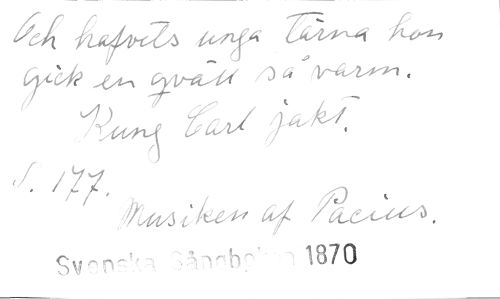 Och hafvets unga tärna hon
gick en qväll så varm.
Kung Carl jakt.
S. 177.
Musiken af Pacius.
Svenska Sångboken 1870